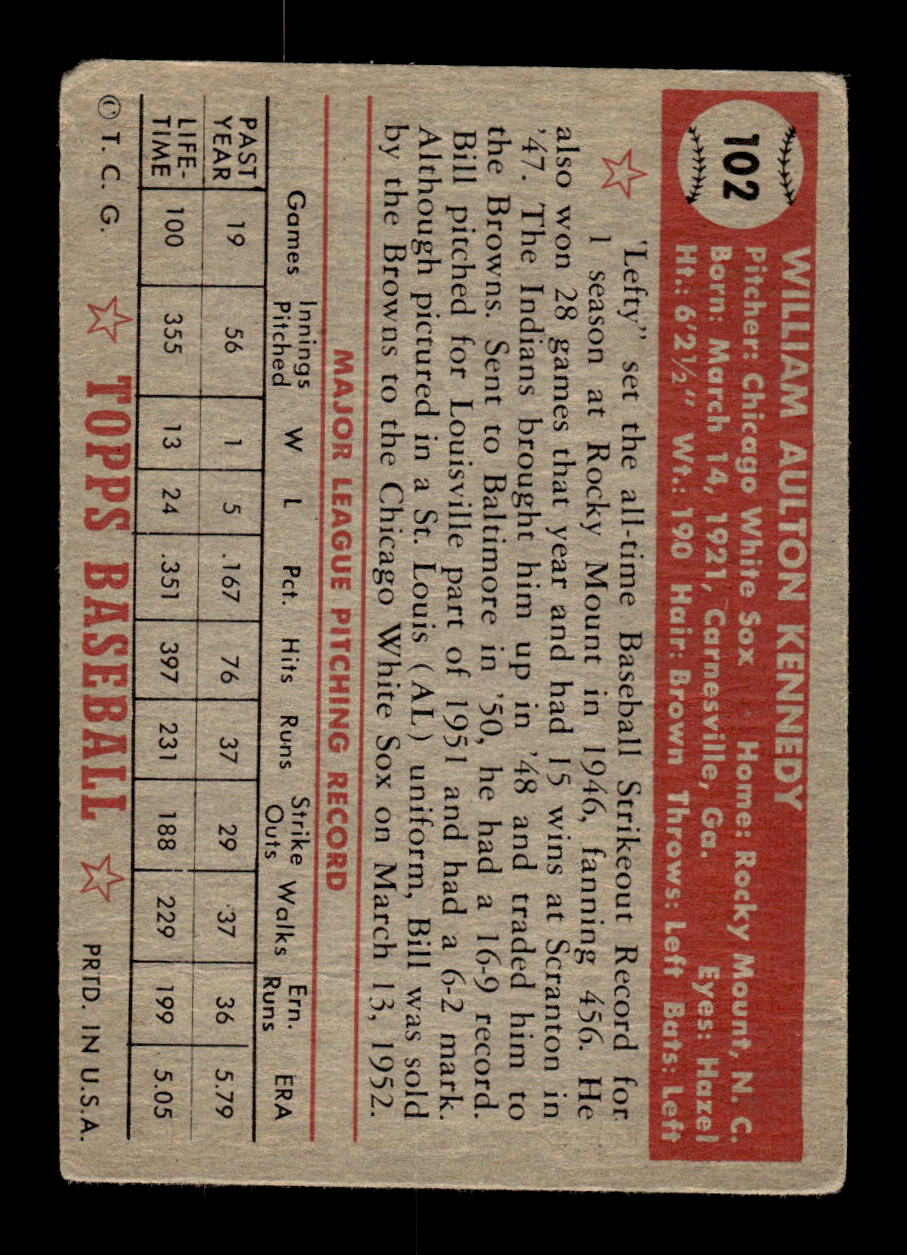 102
WILLIAM AULTON KENNEDY
Pitcher: Chicago White Sox Home: Rocky Mount, N. C.
Born: March 14, 1921, Carnesville, Ga. Eyes: Hazel
Ht.: 6'2½" Wt.: 190 Hair: Brown Throws: Left Bats: Left
'Lefty" set the all-time Baseball Strikeout Record for
1 season at Rocky Mount in 1946, fanning 456. He
also won 28 games that year and had 15 wins at Scranton in
'47. The Indians brought him up in '48 and traded him to
the Browns. Sent to Baltimore in '50, he had a 16-9 record.
Bill pitched for Louisville part of 1951 and had a 6-2 mark.
Although pictured in a St. Louis (AL) uniform, Bill was sold
by the Browns to the Chicago White Sox on March 13, 1952.
MAJOR LEAGUE PITCHING RECORD
Games Innings Pitched W L Pct. Hits Runs Strike Outs Walks Ern. Runs ERA
PAST YEAR 19 56 1 5 .167 76 37 29 37 36 5.79
LIFE-TIME 100 355 13 24 .351 397 231 188 229 199 5.05
© T. C. G. TOPPS BASEBALL PRTD. IN U.S.A.